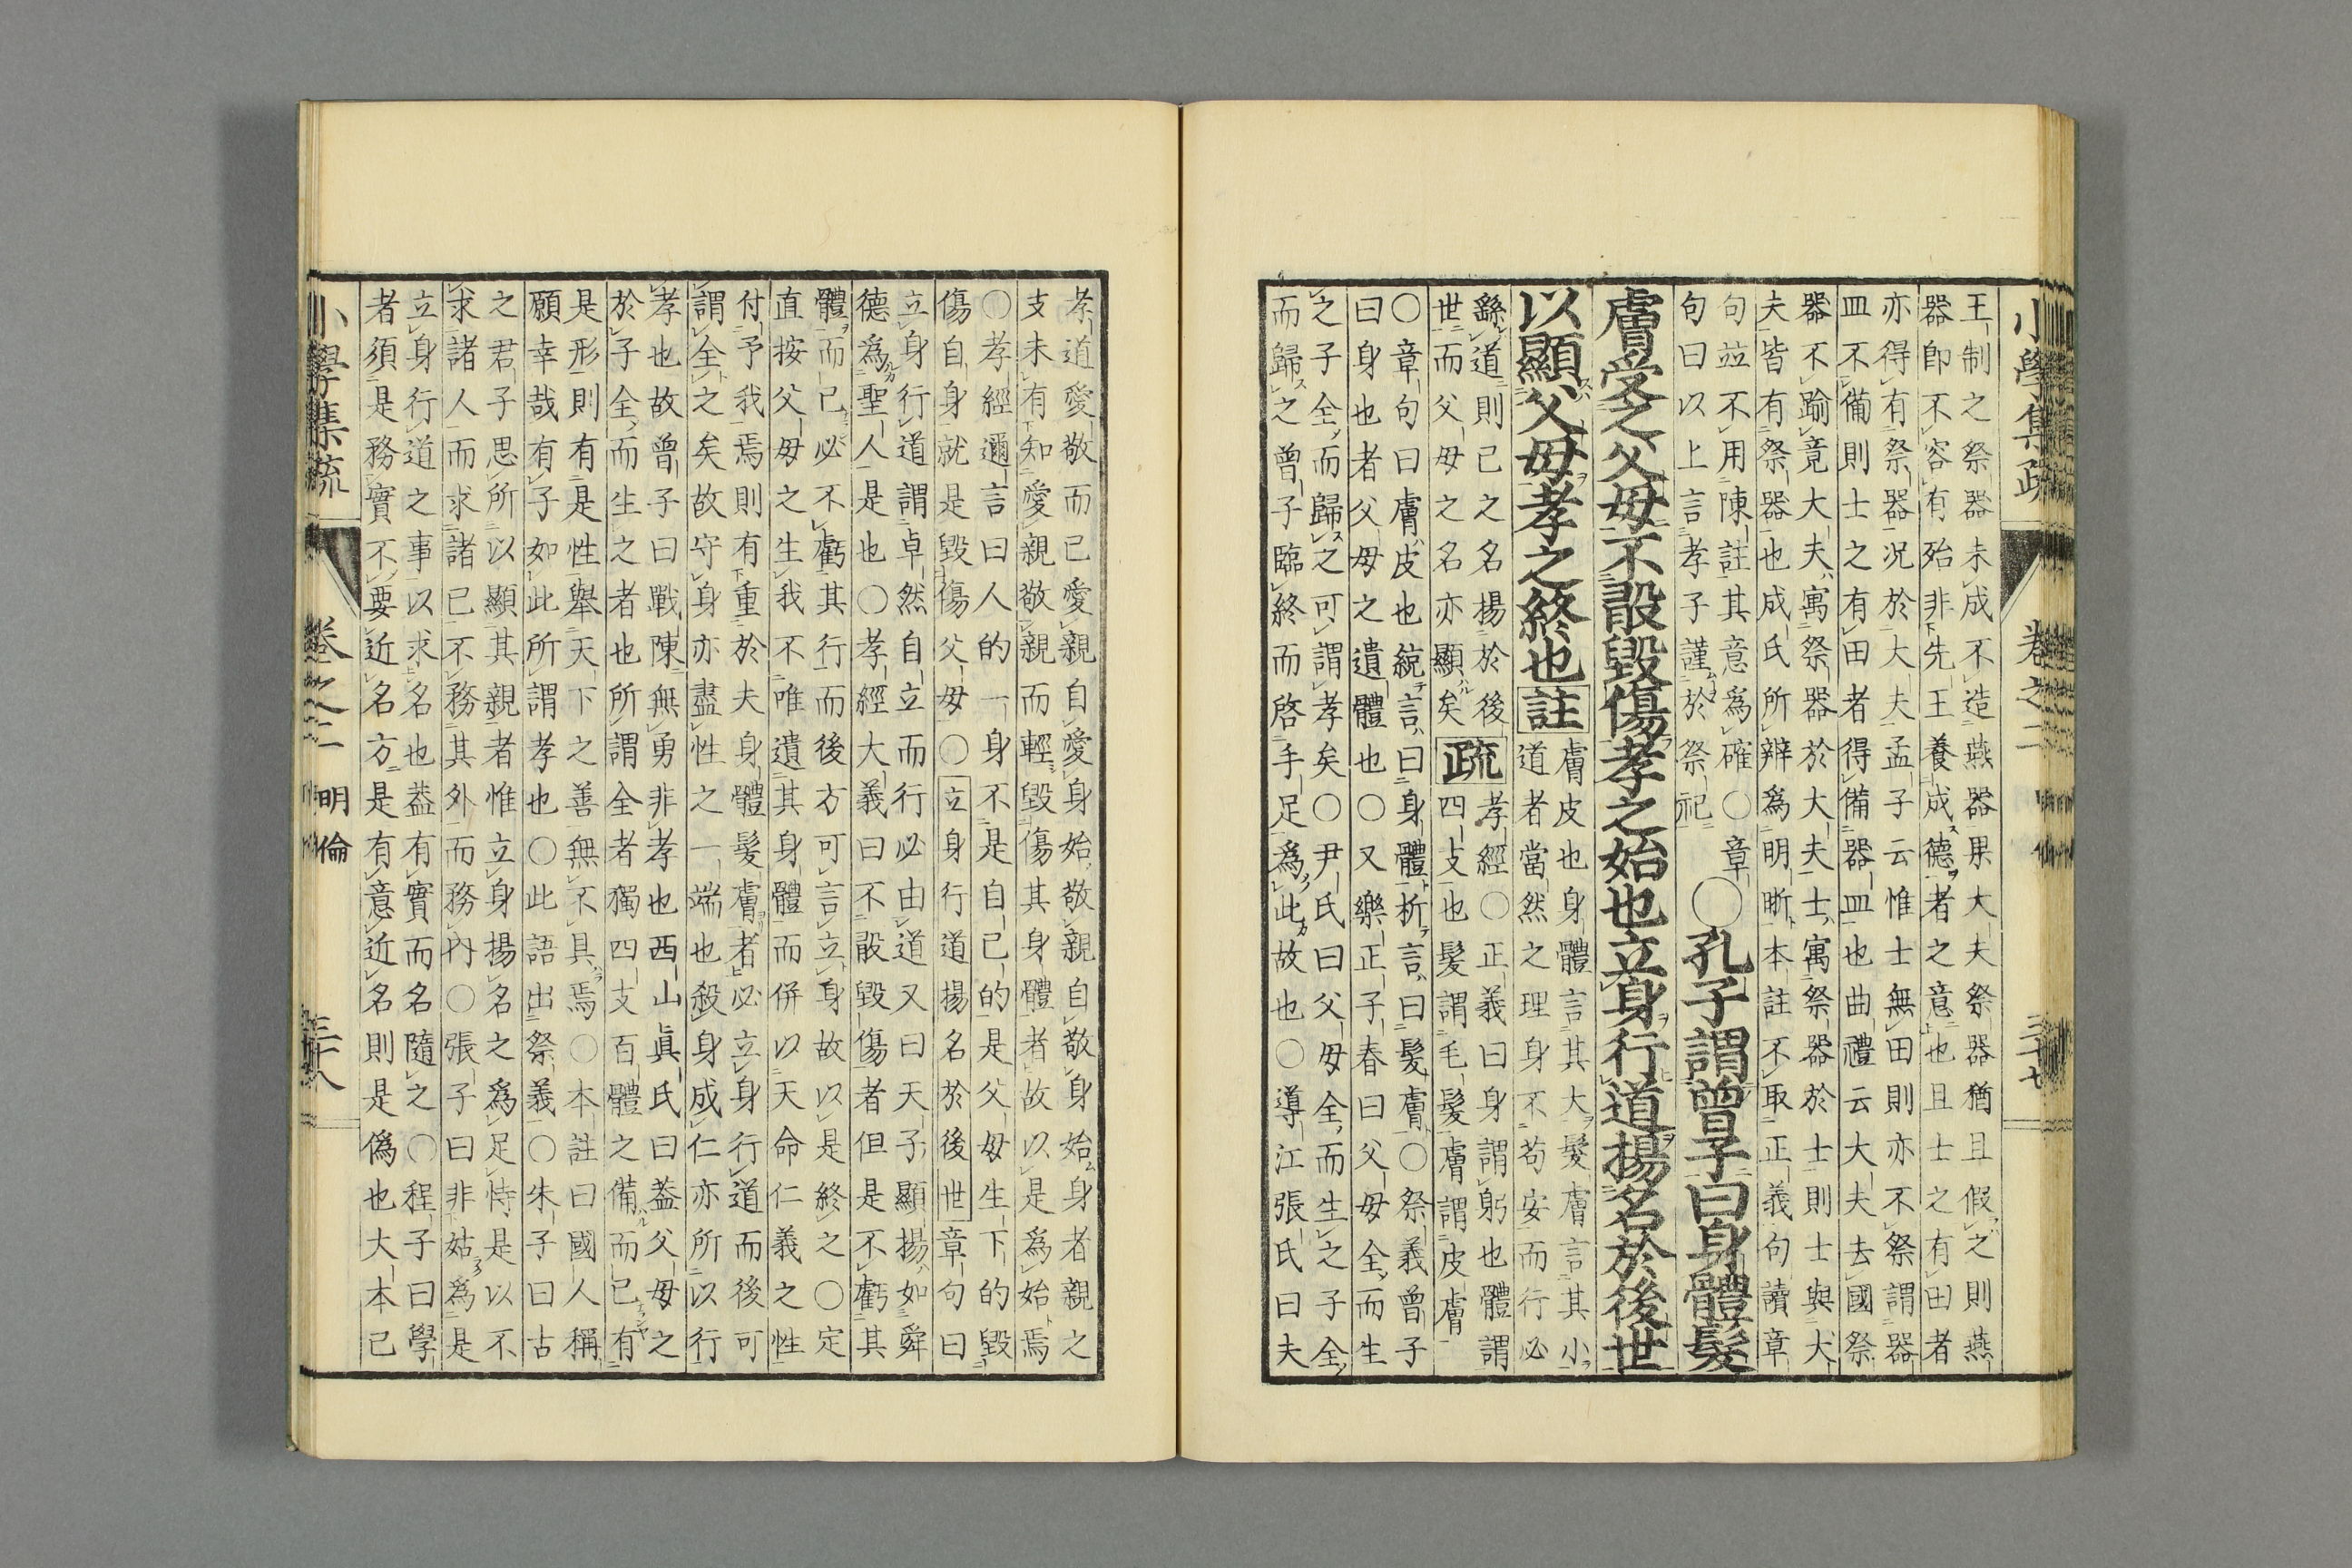 王制之祭器未成不造燕器果大夫祭器猶且假之則燕
器卽不容有殆非先王養成德者之意也且士之有田者
亦得有祭器况於大夫孟子云惟士無田則亦不祭謂器
皿不備則士之有田者得備器皿也曲禮云大夫去國祭
器不踰竟大夫寓祭器於大夫士寓祭器於士則士與大
夫皆有祭器也成氏所辨爲明晣本註不取正義句讀章
句竝不用陳註其意爲確○章
句曰以上言孝子謹於祭祀
○孔子謂曾子曰身體髮
膚受之父母不敢毀傷孝之始也立身行道揚名於後世
以顯父母孝之終也註
膚皮也身體言其大髮膚言其小
道者當然之理身不苟安而行必
繇道則己之名揚於後
世而父母之名亦顯矣
疏
孝經○正義曰身謂躬也體謂
四支也髮謂毛髮膚謂皮膚
○章句曰膚皮也統言曰身體折言曰髮膚○祭義曾子
曰身也者父母之遺體也○又樂正子春曰父母全而生
之子全而歸之可謂孝矣○尹氏曰父母全而生之子全
而歸之曾子臨終而啓手足爲此故也○導江張氏曰夫
小學集疏
卷之二
三十七
孝道愛敬而已愛親自愛身始敬親自敬身始身者親之
支未有知愛親敬親而輕毀傷其身體者故以是爲始焉
○孝經邇言曰人的一身不是自己的是父母生下的毀
傷自身就是毀傷父母○立身行道揚名於後世章句曰
立身行道謂卓然自立而行必由道又曰天子顯揚如舜
德爲聖人是也○孝經大義曰不敢毀傷者但是不虧其
體而已必不虧其行而後方可言立身故以是終之○定
直按父母之生我不唯遺其身體而併以天命仁義之性
付予我焉則有重於夫身體髮膚者必立身行道而後可
謂全之矣故守身亦盡性之一端也殺身成仁亦所以行
孝也故曾子曰戰陳無勇非孝也西山眞氏曰葢父母之
於子全而生之者也所謂全者獨四支百體之備而已有
是形則有是性舉天下之善無不具焉○本註曰國人稱
願幸哉有子如此所謂孝也○此語出祭義○朱子曰古
之君子思所以顯其親者惟立身揚名之爲足恃是以不
求諸人而求諸己不務其外而務內○張子曰非姑爲是
立身行道之事以求名也葢有實而名隨之○程子曰學
者須是務實不要近名方是有意近名則是僞也大本已
小學集疏
卷之二
明倫
三十八